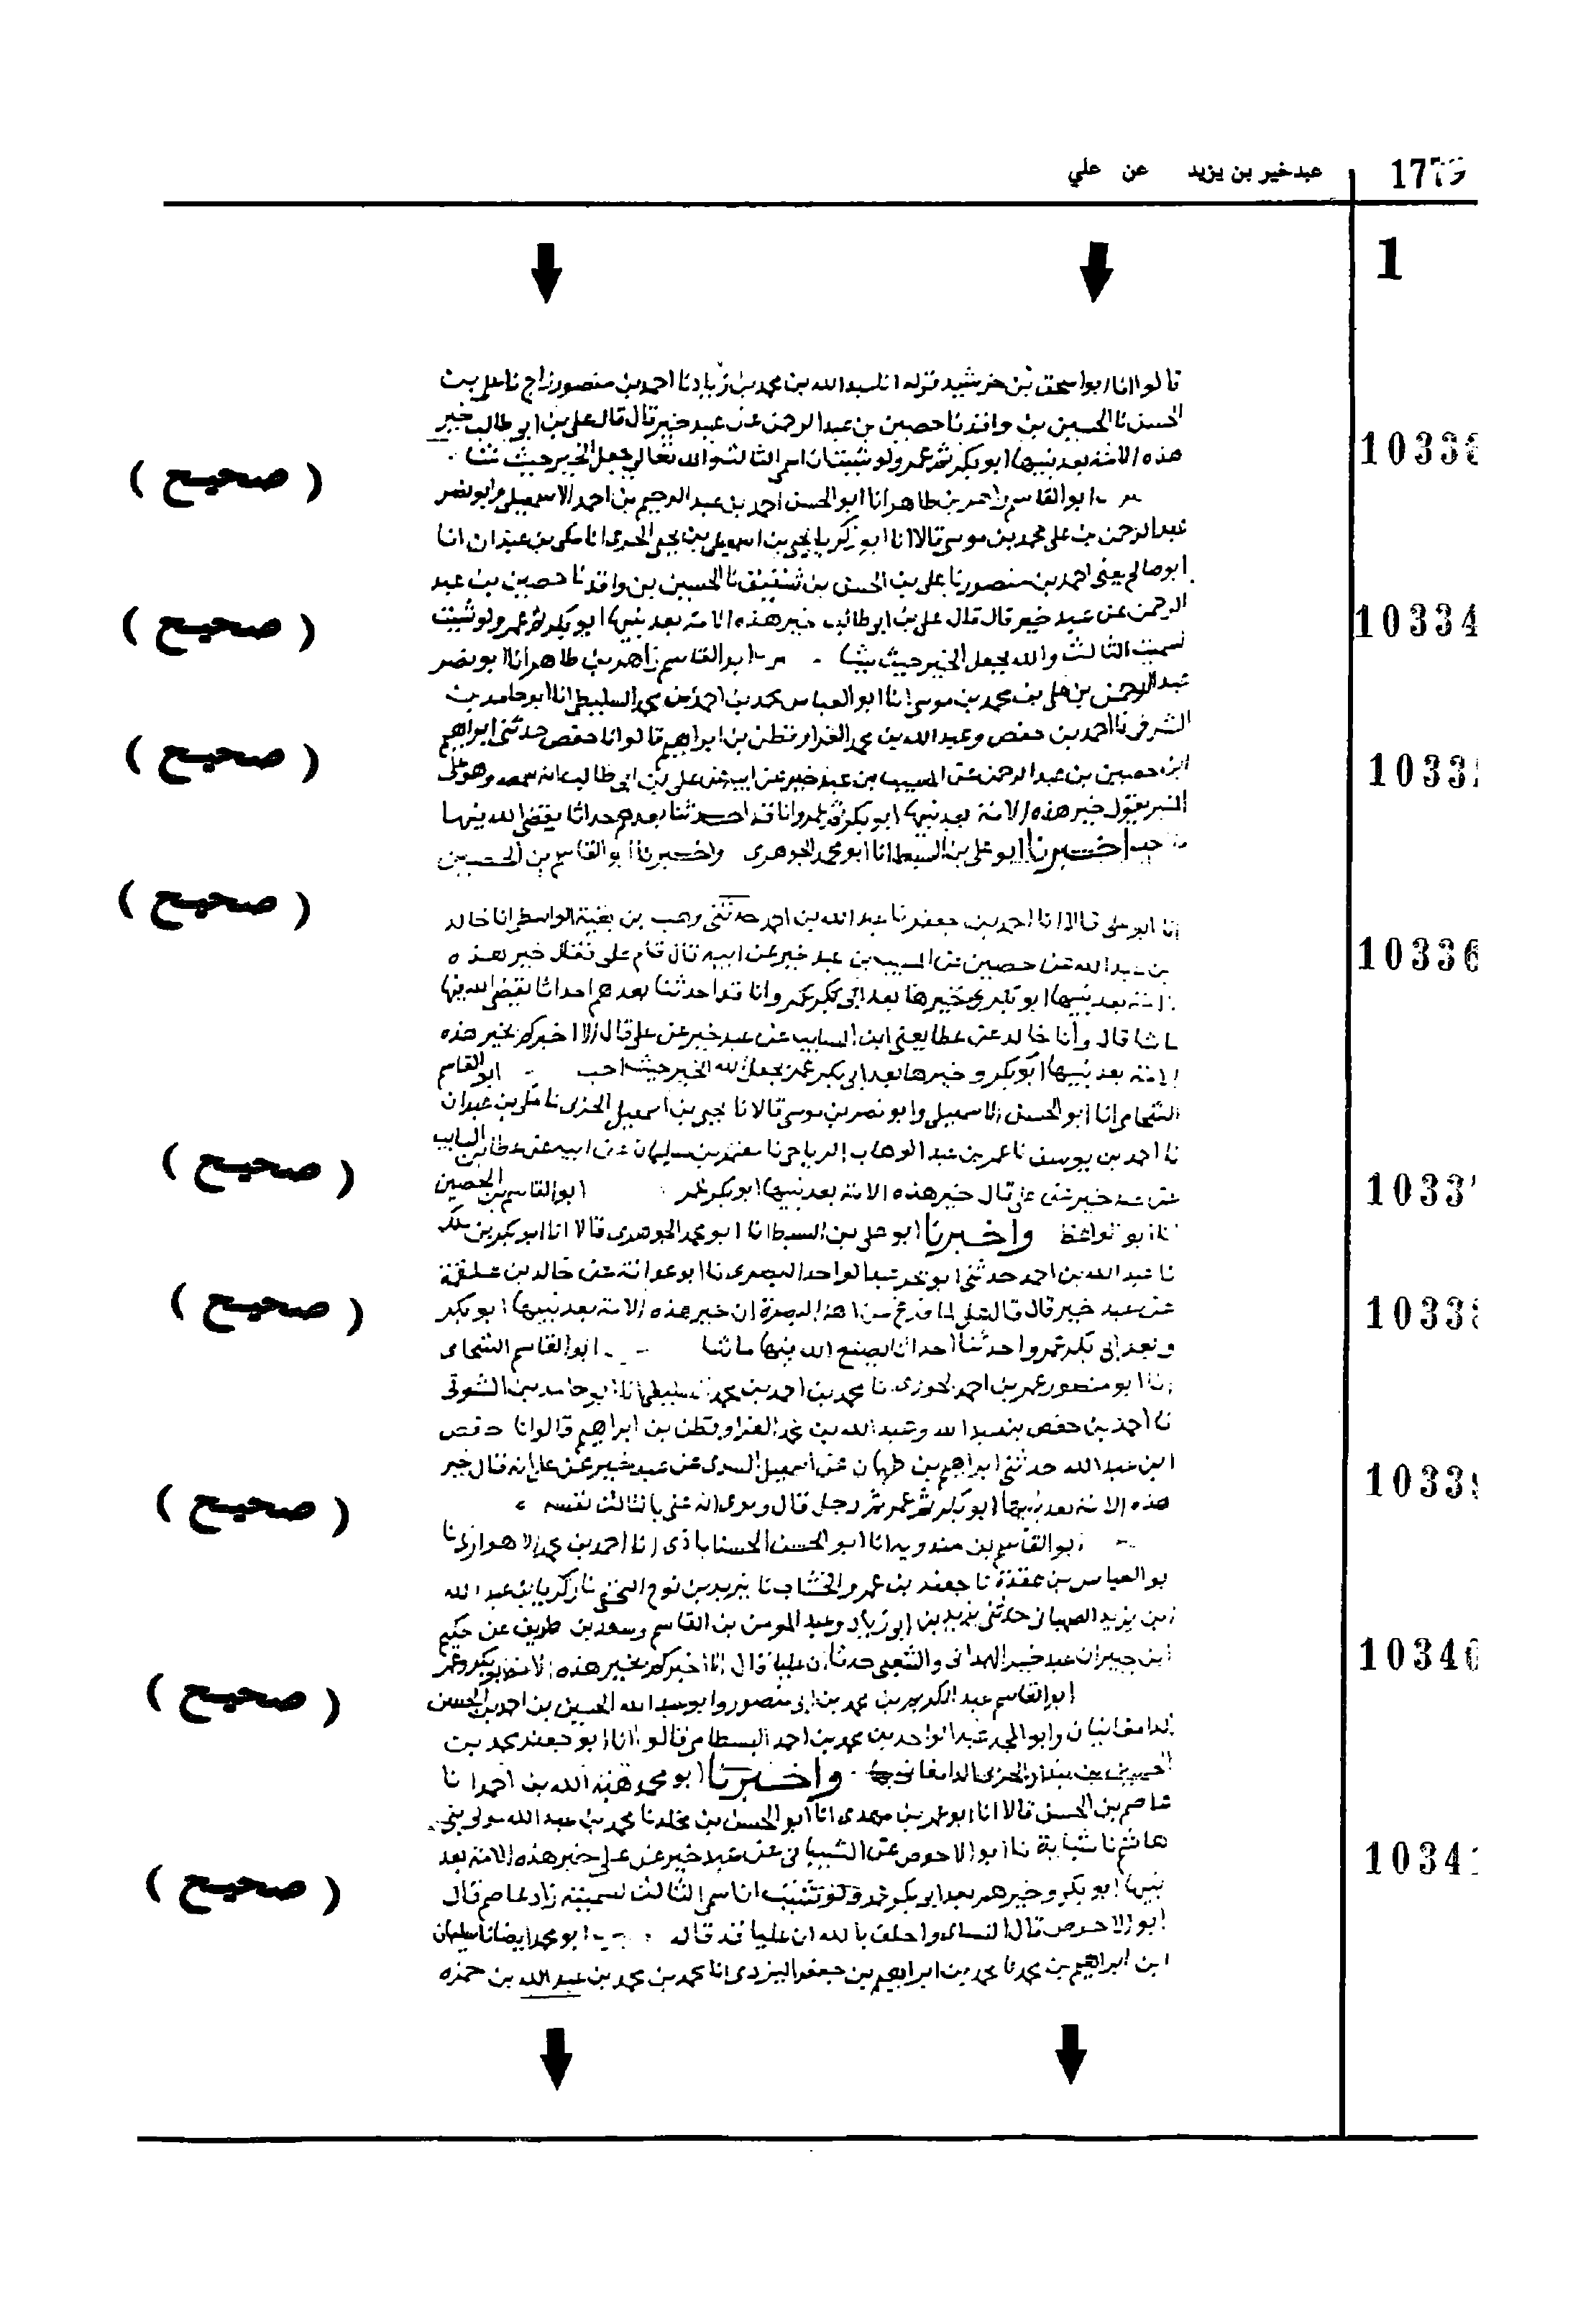 عبدخير بن يزيد عن علي
1
قالوا انا ابواسحق بن خرشيد قوله انا عبدالله بن محمد بن زياد نا احمد بن منصور زاج نا علي بن
الحسن نا الحسين بن واقد نا حصين بن عبدالرحمن عن عبد خير قال قال علي بن ابو طالب خير
هذه الامة بعد نبيها ابو بكر ثم عمر ولو شئت ان اسمي الثالث والله تعالي يجعل الخير حيث شا
10333
( صحيح )
ابو القاسم زاهر بن طاهر انا ابو الحسن احمد بن عبد الرحيم بن احمد الاسمعيلي وابو نصر
عبدالرحمن بن علي محمد بن موسى قالا انا ابو زكريا يحيى بن اسمعيل بن يحيى الحربى انا مكى بن عبدان انا
ابوصالح يعنى احمد بن منصور نا علي بن الحسن بن شقيق نا الحسين بن واقد نا حصين بن عبد
الرحمن عن عبد خير قال قال علي بن ابو طالب خير هذه الامة بعد نبيها ابو بكر ثم عمر ولو شئت
10334
( صحيح )
لسميت الثالث والله يجعل الخير حيث يشا ابو القاسم زاهر بن طاهر انا ابو نصر
عبدالرحمن بن علي بن محمد بن موسى انا ابو العباس محمد بن احمد بن محمد السليطي انا ابو حامد بن
الشرقى نا احمد بن حفص وعبد الله بن محمد الفراء وقطن بن ابراهيم قالوا نا حفص حدثنى ابراهيم
عن حصين بن عبدالرحمن عن المسيب بن عبد خير عن ابيه عن علي بن ابى طالب انه سمعه وهو على
1033
( صحيح )
المنبر يقول خير هذه الامة بعد نبيها ابو بكر ثم عمر وانا قد احدثنا بعدهم احداثا يقضى الله فيها
اخبرنا ابو علي بن السبط انا ابو محمد الجوهرى واخبرنا ابو القاسم بن الحصين
( صحيح )
انا ابو علي قالا انا احمد بن جعفر نا عبد الله بن احمد حدثنى وهب بن بقية الواسطي انا خالد
بن عبد الله عن حصين عن المسيب بن عبد خير عن ابيه قال قام علي فقال خير هذه
10336
الامة بعد نبيها ابو بكر وخيرها بعد ابى بكر عمر وانا قد احدثنا بعدهم احداثا يقضى الله فيها
ما شا قال وانا خالد عن عطا يعنى ابن السايب عن عبد خير عن علي قال الا اخبركم بخير هذه
الامة بعد نبيها ابو بكر وخيرها بعد ابى بكر عمر يجعل الله الخير حيث احب ابو القاسم
الشحامى انا ابو الحسن الاسمعيلى وابو نصر بن موسى قالا نا يحيى بن اسمعيل الحربى نا مكى بن عبدان
نا احمد بن يوسف نا عمر بن عبد الوهاب الرياحى نا معتمر بن سليمان عن ابيه عن عطا بن السايب
عن عبد خير عن علي قال خير هذه الامة بعد نبيها ابو بكر وعمر ابو القاسم بن الحصين
1033
( صحيح )
واخبرنا ابو علي بن السبط انا ابو محمد الجوهرى قالا انا ابو بكر بن ملك
نا عبد الله بن احمد حدثنى ابو بحر عبد الواحد البصرى نا ابو عوانة عن خالد بن علقمة
عن عبد خير قال قال علي لما فرغ من اهل البصرة ان خير هذه الامة بعد نبيها ابو بكر
10338
( صحيح )
وبعد ابى بكر عمر واحدثنا احداثا يصنع الله فيها ما شا ابو القاسم الشحامى
انا ابو منصور عمر بن احمد الجوزى نا محمد بن احمد بن محمد السليطى انا ابو حامد بن الشرقى
نا احمد بن حفص بن عبد الله وعبد الله بن محمد الفراء وقطن بن ابراهيم قالوا نا حفص
ابن عبد الله حدثنى ابراهيم بن طهمان عن اسمعيل السدى عن عبد خير عن علي انه قال خير
10339
( صحيح )
هذه الامة بعد نبيها ابو بكر ثم عمر ثم رجل قال ويرى انه عنى بالثالث نفسه
ابو القاسم بن مندويه انا ابو الحسن الحسنابادى انا احمد بن محمد الاهوازى نا
ابو العباس بن عقدة نا جعفر بن عمرو الخشاب نا يزيد بن نوح النخعى نا زكريا بن عبد الله
بن يزيد الصهبانى حدثنى يزيد بن ابى زياد وعبد المومن بن القاسم وسعد بن طريف عن حكيم
ابن جبير ان عبد خير الهمدانى والشعبى حدثا ان عليا قال الا اخبركم بخير هذه الامة ابو بكر وعمر
10340
( صحيح )
ابو القاسم عبد الكريم بن محمد بن ابى منصور وابو عبد الله الحسين بن احمد بن الحسن
الدامغانيان وابو المجد عبد الواحد بن محمد بن احمد البسطامى قالوا انا ابو جعفر محمد بن
واخبرنا ابو محمد هبة الله بن احمد انا
عاصم بن الحسن قالا انا ابو عمر بن مهدى انا ابو الحسن بن مخلد نا محمد بن عبد الله مولى بنى
هاشم نا شبابة نا ابو الاحوص عن الشيبانى عن عبد خير عن علي خير هذه الامة بعد
1034
( صحيح )
نبيها ابو بكر وخيرهم بعد ابو بكر عمر ولو شئت ان اسمى الثالث لسميته زاد عاصم قال
ابو الاحوص قال النسائى واحلف بالله ان عليا قد قاله ابو محمد ايضا نا سليمان
ابن ابراهيم بن محمد نا محمد بن ابراهيم بن جعفر اليزدى انا محمد بن محمد بن عبد الله بن حمزه